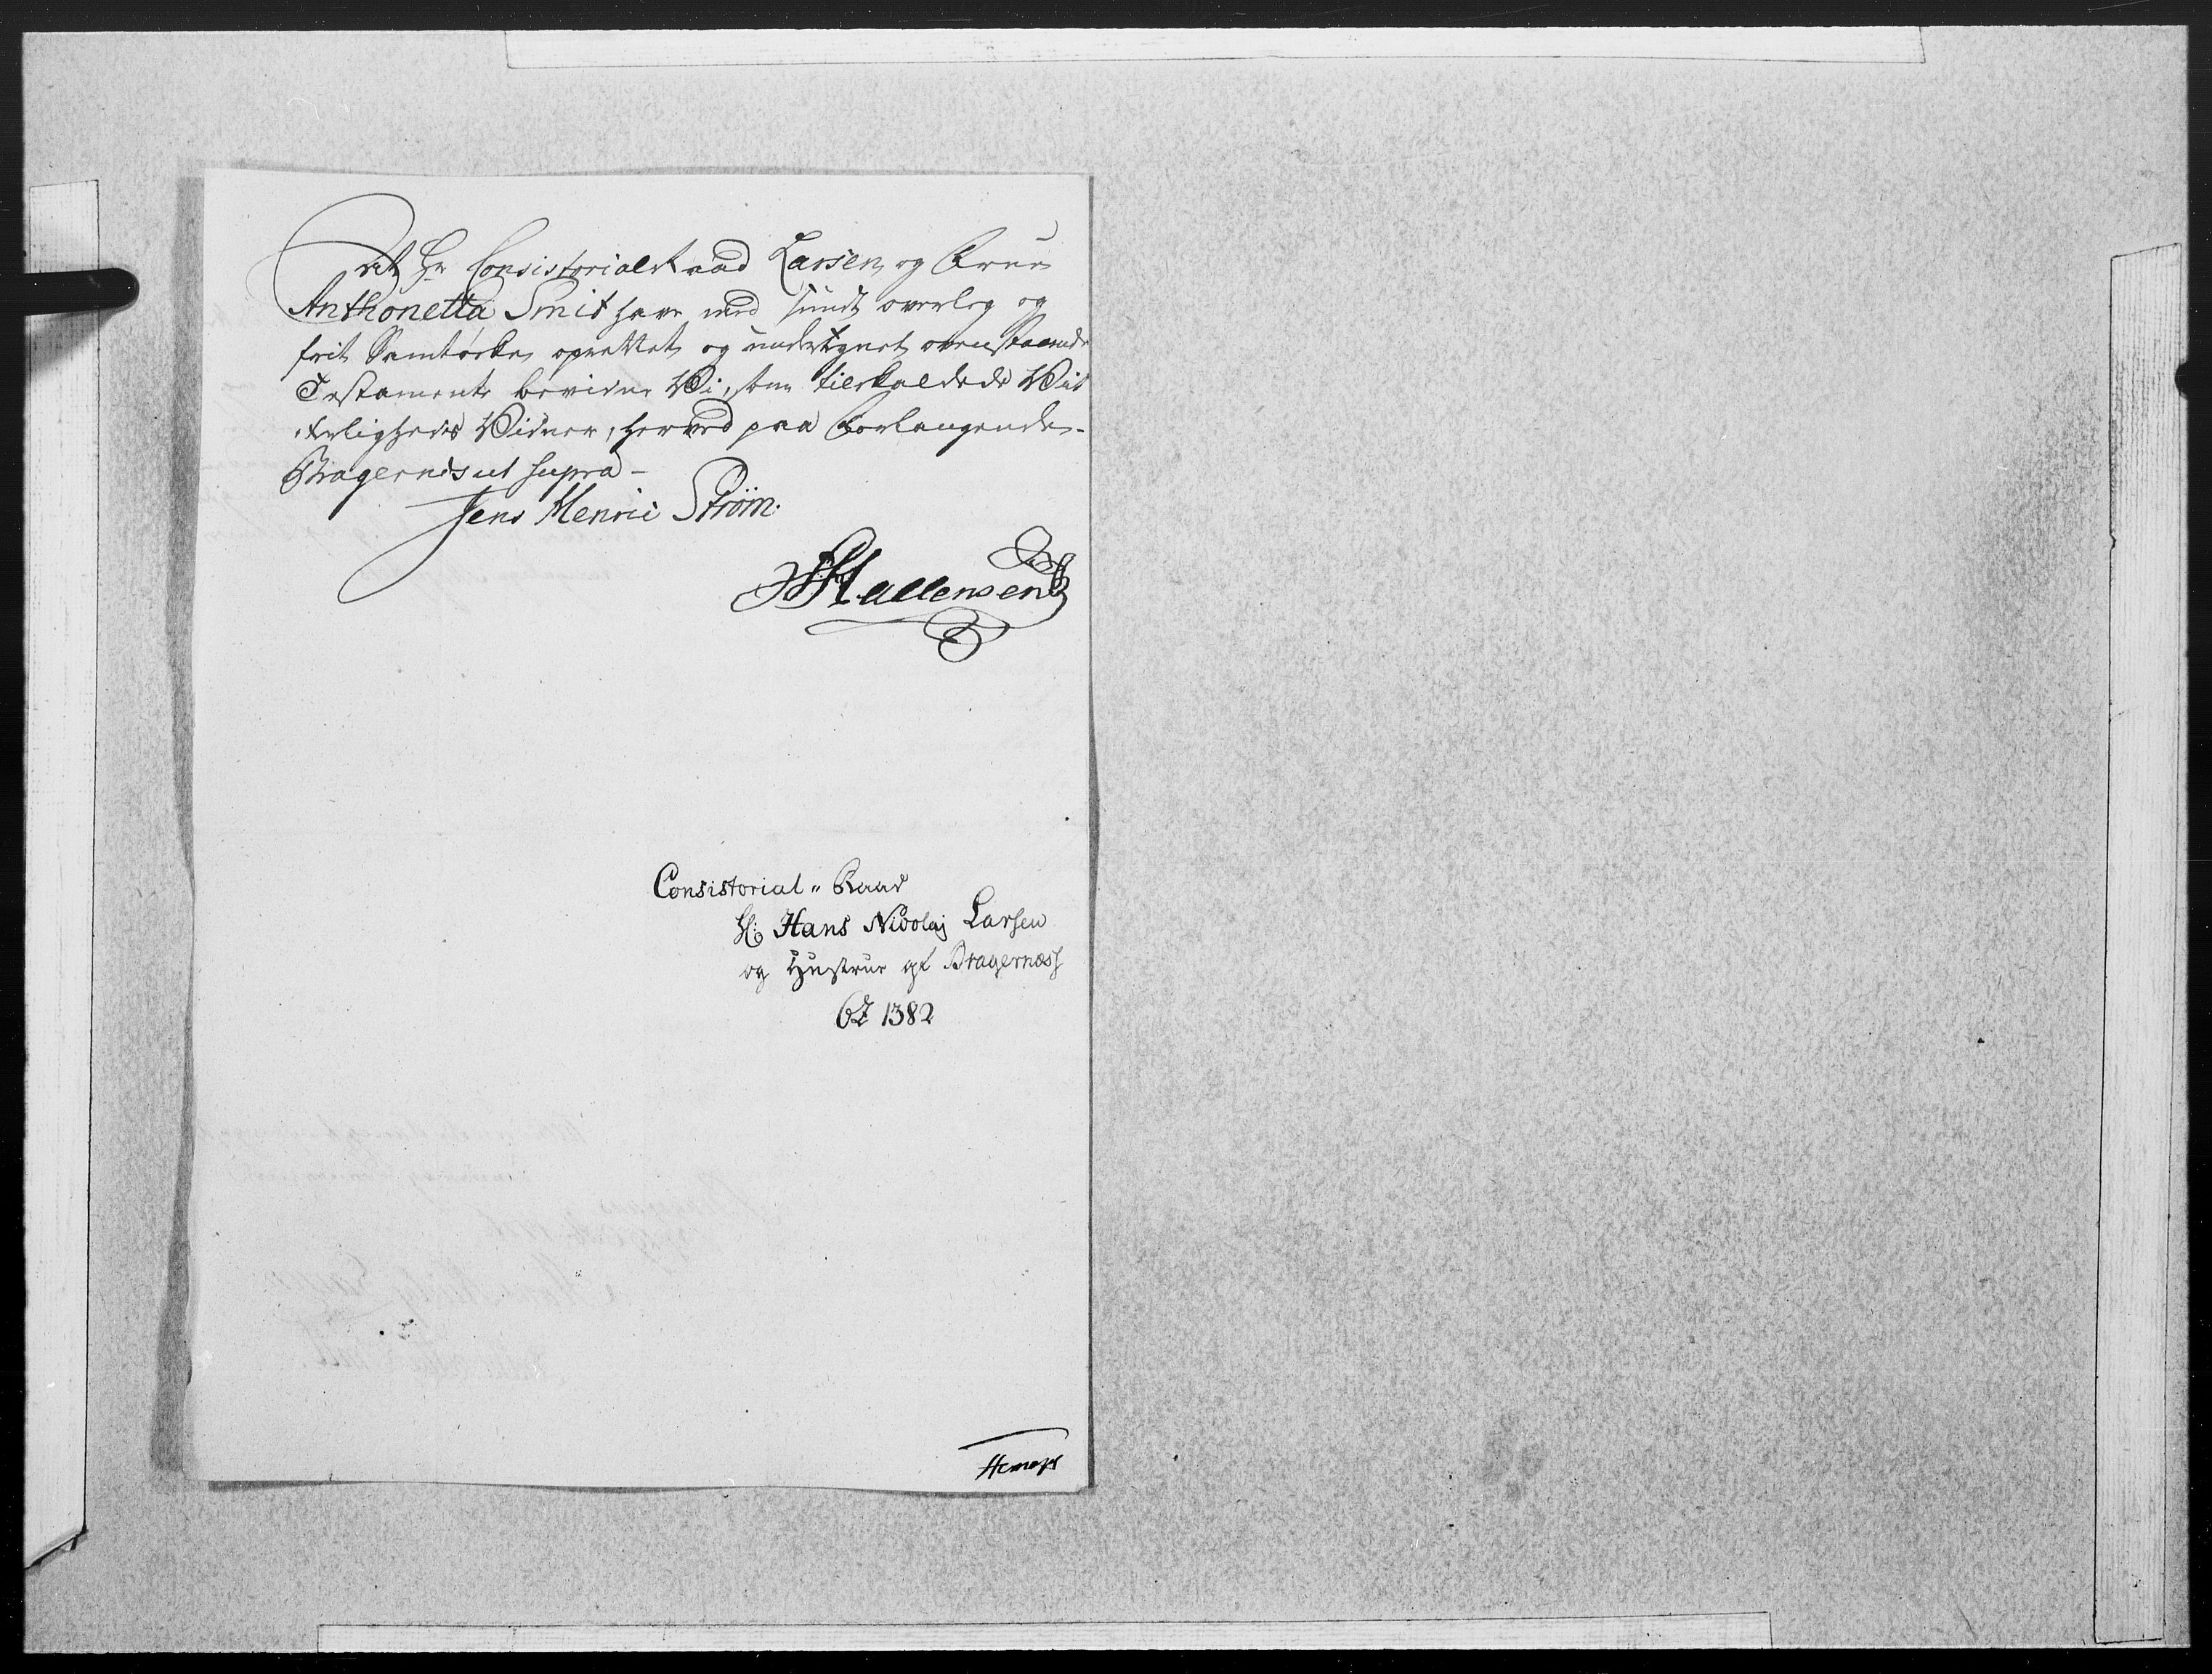 At Hr Consistorial Raad Larsen og Frue
Anthonetta Smit have med sundt overleg og
frit Samtycke oprettet og undertegnet ovenstaaende
Testamente bevidne Vi, som tilkaldede Vit
terligheds Vidner, herved paa Forlangende.
Bragernes ut supra -
Jens Henric Strøm.
Hallensen
Consistorial " Raad
Hr: Hans Nicolaj Larsen
og Hustrue af Bragernæss
1382